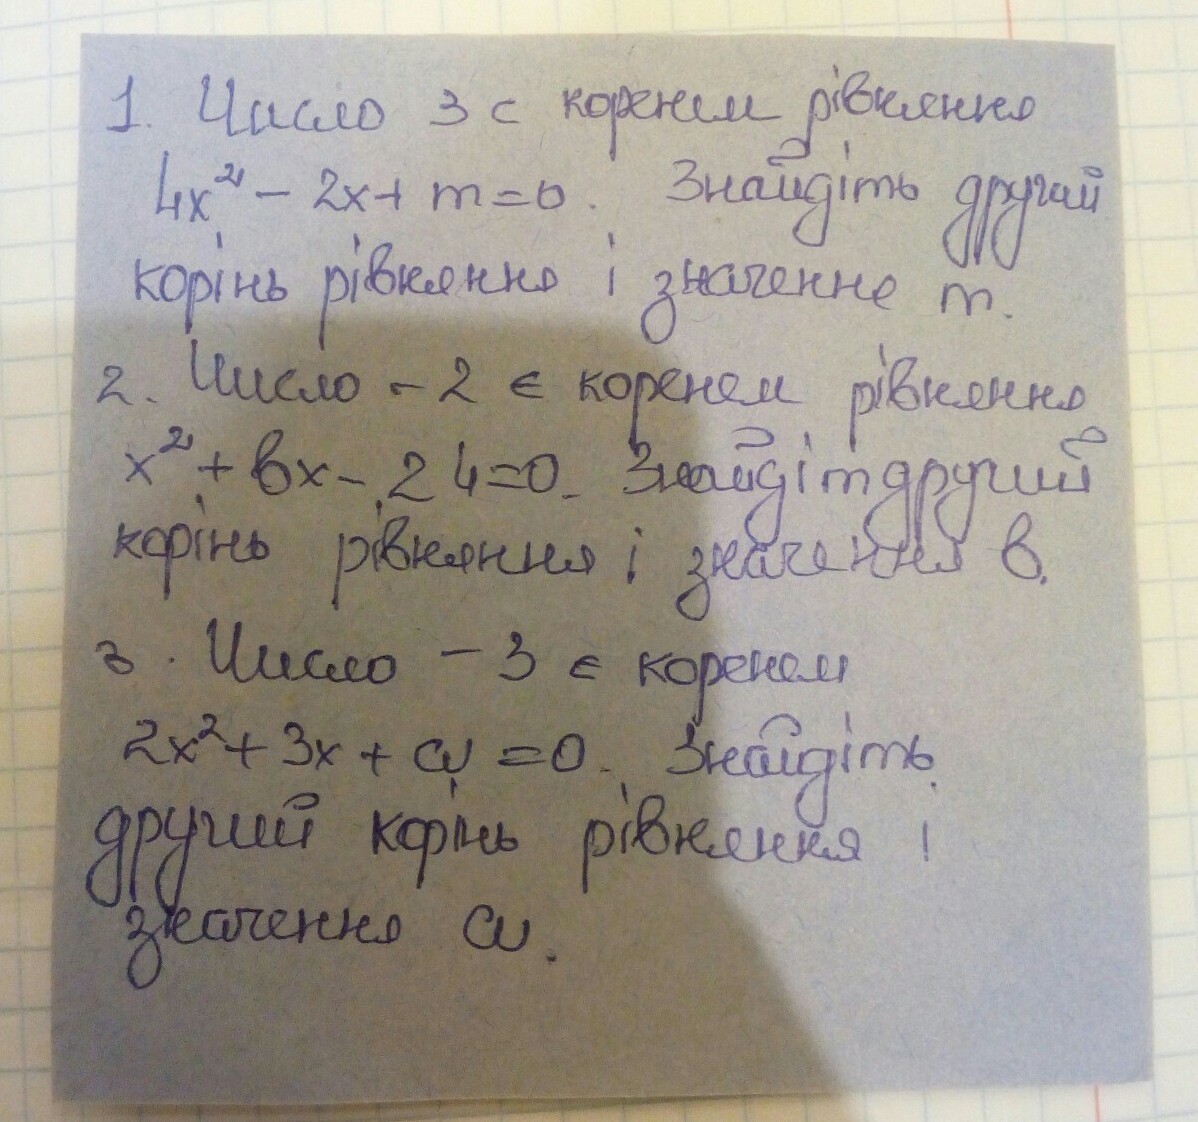 1. Число 3 є коренем рівняння
4x² - 2x + m = 0. Знайдіть другий
корінь рівняння і значення m.
2. Число - 2 є коренем рівняння
x² + bx - 24 = 0. Знайдіт другий
корінь рівняння і значення b.
3. Число - 3 є коренем
2x² + 3x + a = 0. Знайдіть
другий корінь рівняння і
значення a.